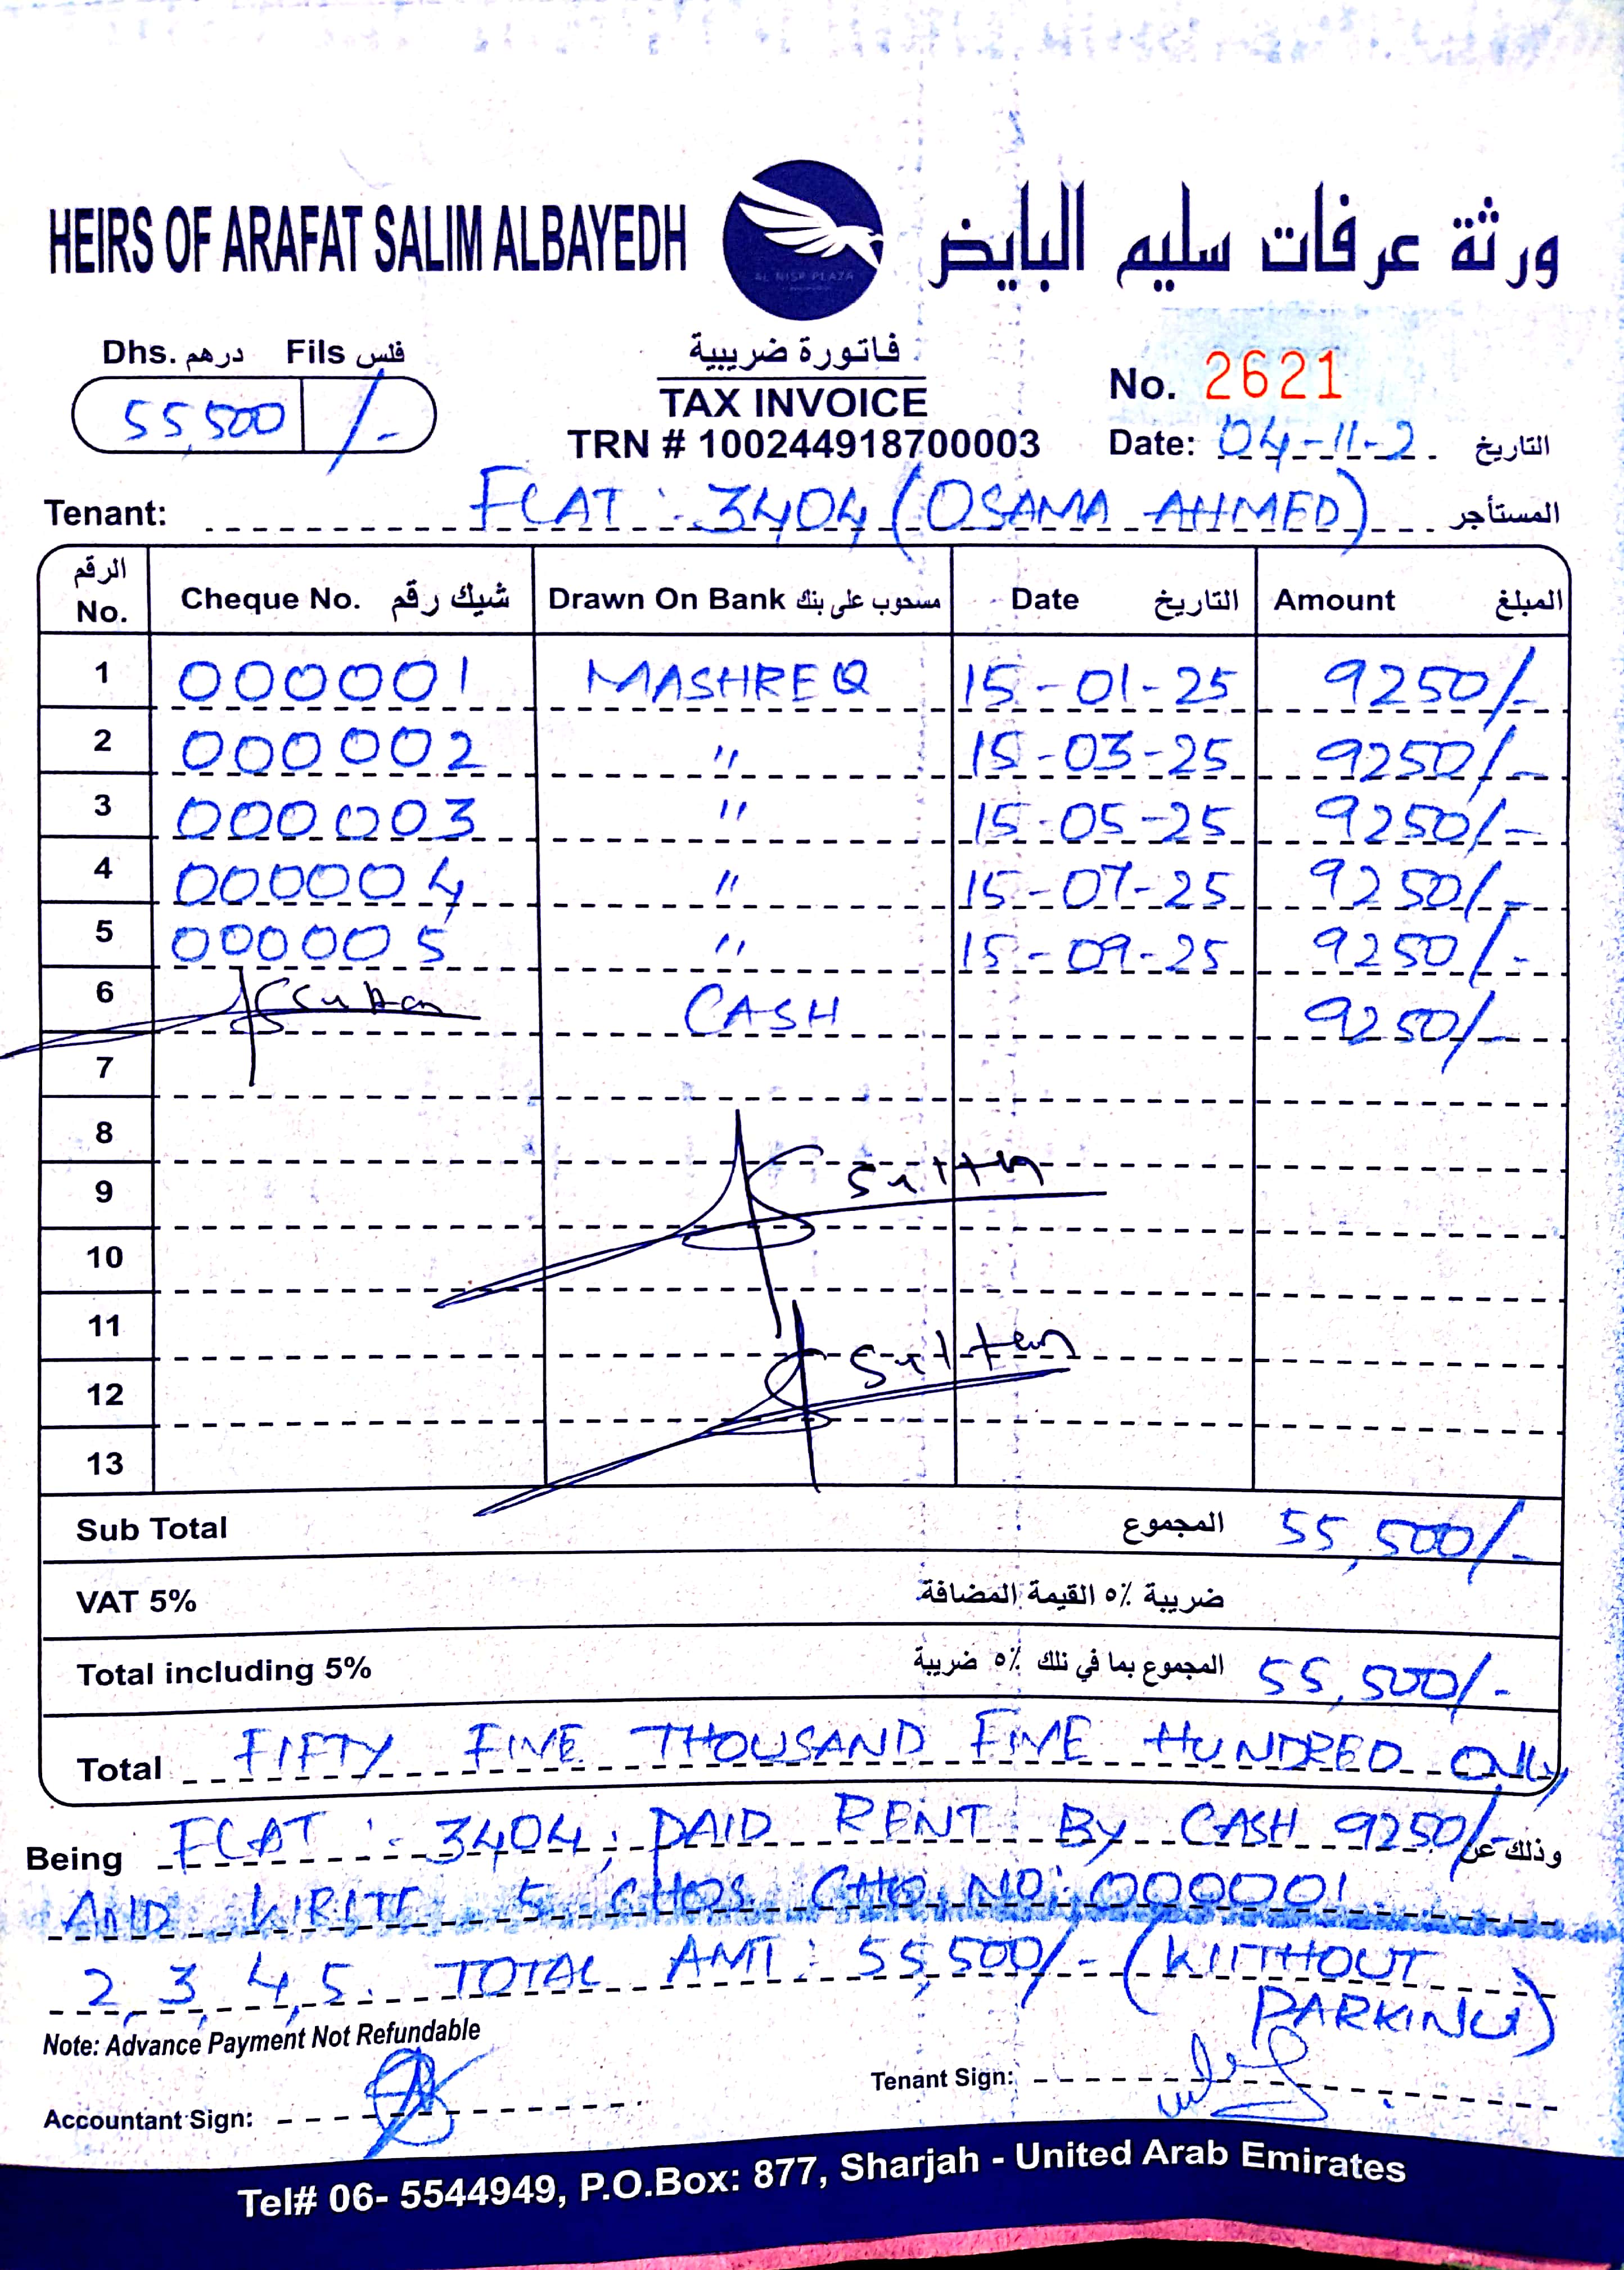 HEIRS OF ARAFAT SALIM ALBAYEDH
ورثة عرفات سليم البايض
AL NISR PLAZA
Dhs. درهم Fils فلس
55,500 /-
فاتورة ضريبية
TAX INVOICE
TRN # 100244918700003
No. 2621
Date: 04-11-2 التاريخ
Tenant: FLAT : 3404 (OSAMA AHMED) المستأجر
الرقم No. Cheque No. شيك رقم Drawn On Bank مسحوب على بنك Date التاريخ Amount المبلغ
1 000001 MASHREQ 15-01-25 9250/-
2 000002 " 15-03-25 9250/-
3 000003 " 15-05-25 9250/-
4 000004 " 15-07-25 9250/-
5 000005 " 15-09-25 9250/-
6 Sultan CASH 9250/-
7
8
9 Sultan
10
11
12 Sultan
13
Sub Total المجموع 55,500/-
VAT 5% ضريبة ٥٪ القيمة المضافة
Total including 5% المجموع بما في تلك ٥٪ ضريبة 55,500/-
Total FIFTY FIVE THOUSAND FIVE HUNDRED ONLY
Being FLAT : 3404, PAID RENT BY CASH 9250/- وذلك عن
AND WRITE 5 CHQS CHQ NO: 000001
2, 3, 4, 5. TOTAL AMT : 55,500/- (WITHOUT
PARKING)
Note: Advance Payment Not Refundable
Accountant Sign:
Tenant Sign:
Tel# 06- 5544949, P.O.Box: 877, Sharjah - United Arab Emirates